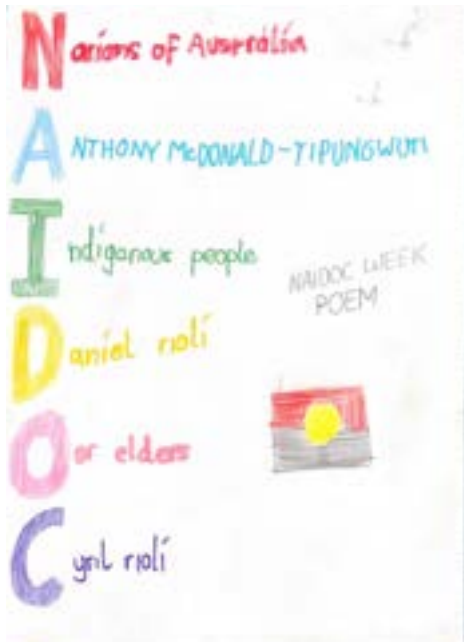 Nations of Australia
ANTHONY McDONALD-TIPUNGWUTI
Indiganous people
NAIDOC WEEK
POEM
Daniel rioli
Oor elders
Cyril rioli